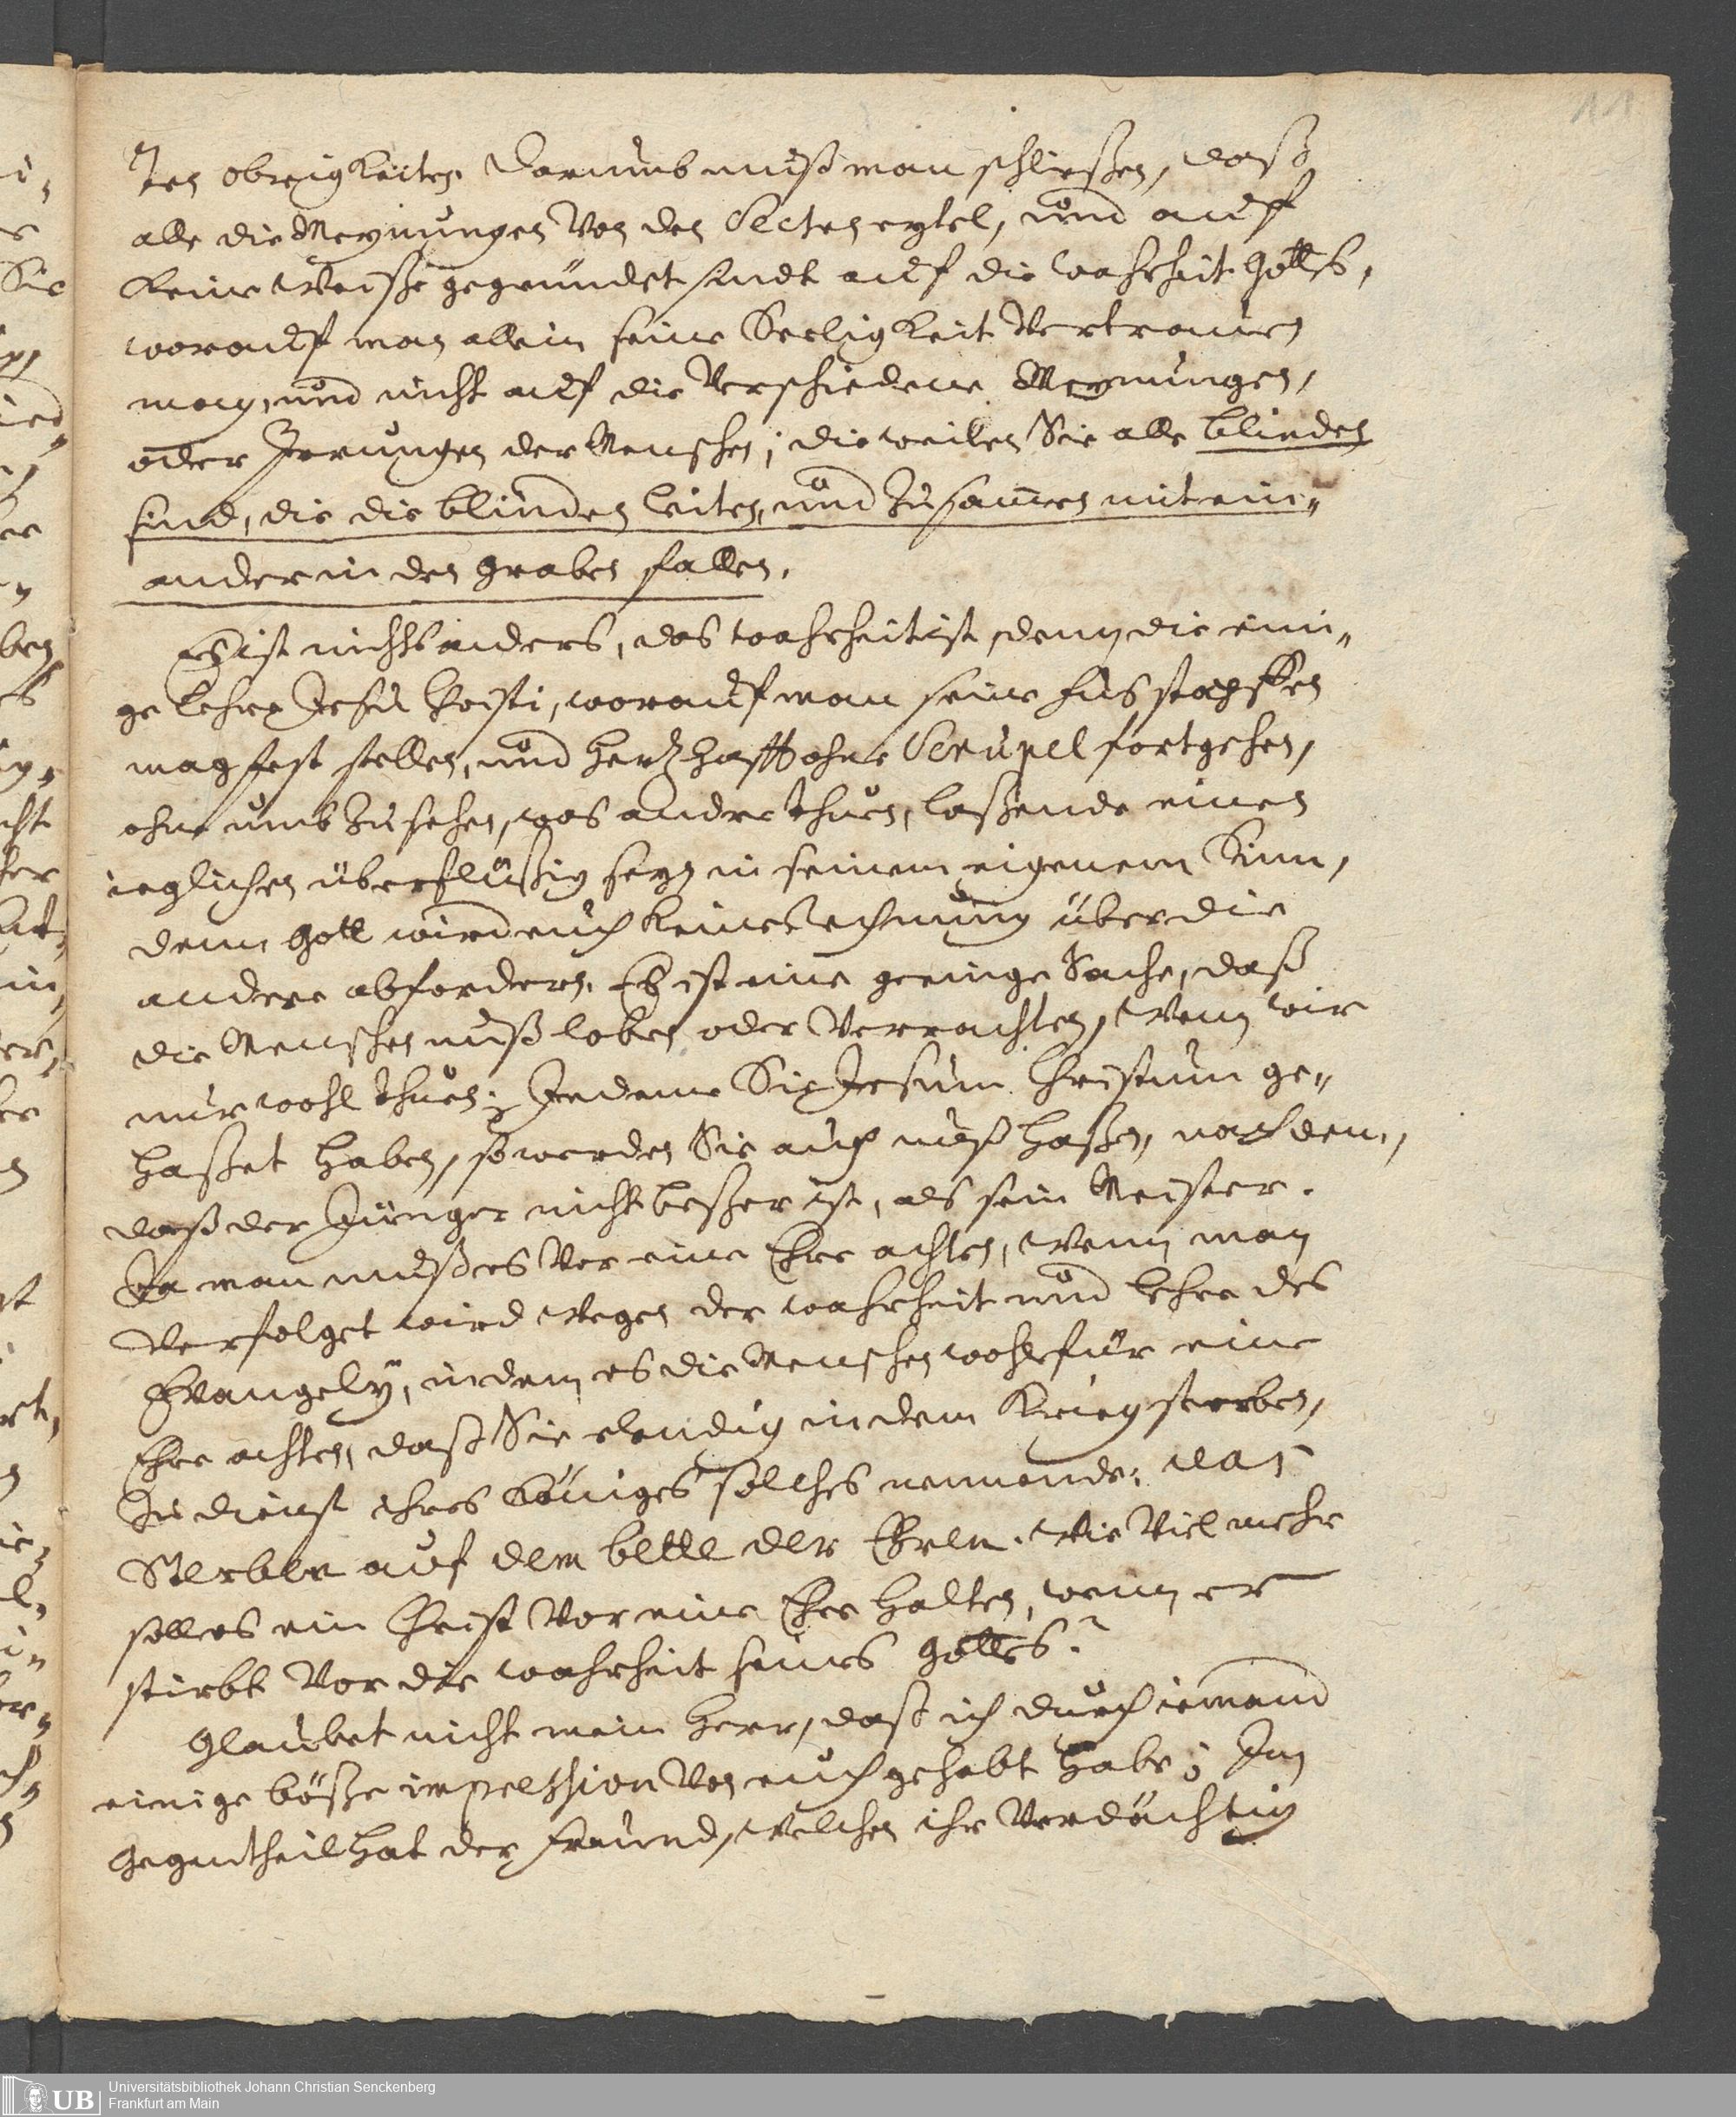 11
ten obrigkeiten. Darumb muß man schließen, daß
alle die Meynungen von den Secten eytel, und auff
keine Weiße gegründet sindt auf die wahrheit Gottes,
worauf man allein seine Seeligkeit Vertrauen
mag, und nicht auf die Verschiedene Meynungen,
oder Irrungen der Menschen; die weilen Sie alle blinden
sind, die die blinden leiten, und zusamen mit ein„
ander in den graben fallen.
Es ist nichts anders, das wahrheit ist, denn die eini„
ge lehre Jesu Christi, worauf man seine fusstapffen
mag fest stellen, und hertzhafft ohne Scrupel fortgehen,
ohne umb zu sehen, was andre thuen, laßende einen
ieglichen überflüßig seyn in seinem eigenem Sinn,
denn Gott wird euch keine rechnung über die
andere abfordern. Es ist eine geringe Sache, daß
die Menschen unß loben oder Verrachten, Wenn wir
nur wohl thuen; Indeme Sie Jesum Christum ge„
haßet haben, so werden Sie auch unß haßen, nachdem,
daß der Jünger nicht beßer ist, als sein Meister.
Ja man muß es Vor eine Ehre achten, Wenn man
Verfolget wird Wegen der wahrheit und lehre des
Evangelÿ, indem es die Menschen wohl für eine
Ehre achten, daß Sie elendig in dem Krieg sterben,
Zu dienst ihres Königes solches nennende: das
Sterben auf dem bette der Ehren. Wie Viel mehr
soll es ein Christ Vor eine Ehre halten, wenn er
stirbt Vor die wahrheit seines Gottes?
Glaubet nicht mein Herr, daß ich durch iemand
einige böße impression Von euch gehabt habe; Im
Gegentheil hat der freund, Welchen ihr Verdächtig
UB
Universitätsbibliothek Johann Christian Senckenberg
Frankfurt am Main